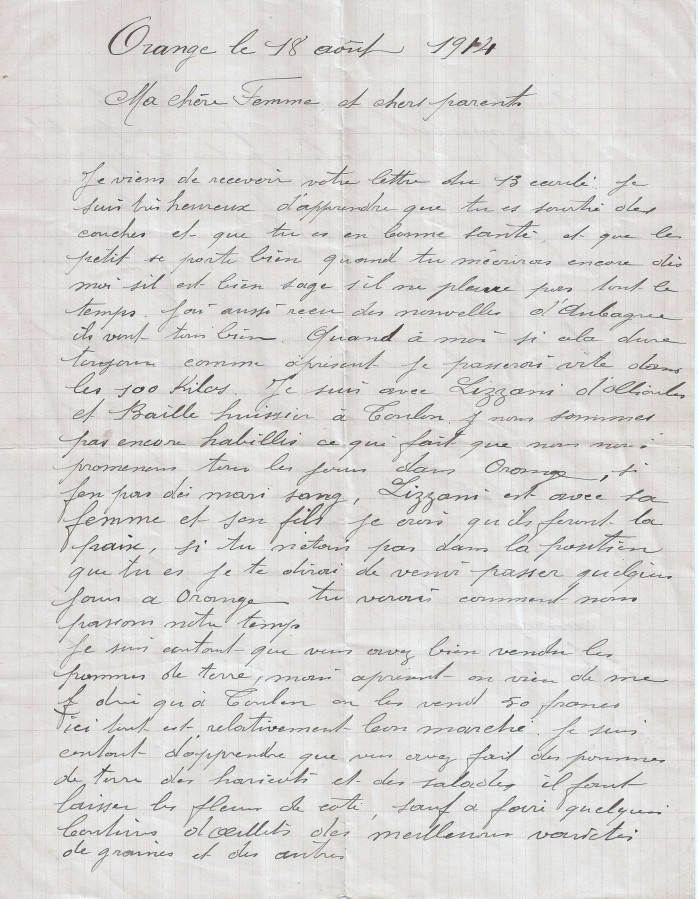 Orange le 18 août 1914
Ma chère Femme et chers parents
Je viens de recevoir votre lettre du 13 Je
suis très heureux d'apprendre que tu es sortie des
couches et que tu es en bonne santé, et que le
petit se porte bien quand tu mécriras encore dis
moi sil est bien sage s'il ne pleure pas tout le
temps. J'ai aussi recu des nouvelles d'Aubagne
ils vont tous bien. Quand à moi si cela dure
toujours comme apresent je passerai vite dans
les 100 Kilos. Je suis avec Lizzani d'Ollioules
et Baille huissier à Toulon, nous sommes
pas encore habillés ce qui fait que nous nous
promenons tous les jours dans Orange, si
j'en pas dei mari sang, Lizzani est avec sa
femme et son fils je crois qu'ils feront la
paix, si tu nétais pas dans la position
que tu es je te dirai de venir passer quelques
jours a Orange tu verrais comment nous
passons notre temps
Je suis contant que vous avez bien vendu les
pommes de terre, mais apresent on vien de me
dire qu'à Toulon on les vend 50 francs
ici tout est relativement bon marché. Je suis
contant d'apprendre que vous avez fait des pommes
de terre des haricots et des salades il faut
laisser les fleurs de coté, sauf a faire quelques
boutures d'œillets des meilleures variétés
de graines et des autres